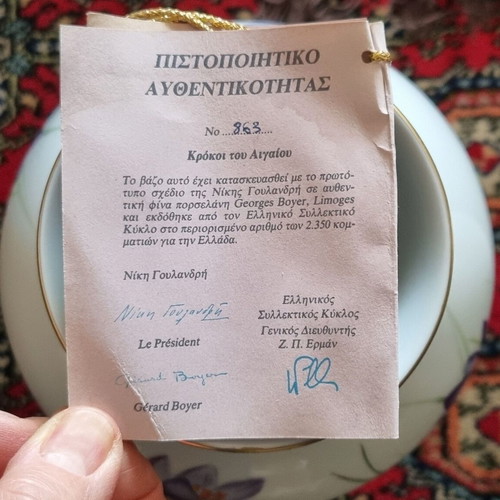 ΠΙΣΤΟΠΟΙΗΤΙΚΟ
ΑΥΘΕΝΤΙΚΟΤΗΤΑΣ
No ....863....
Κρόκοι του Αιγαίου
Το βάζο αυτό έχει κατασκευασθεί με το πρωτό-
τυπο σχέδιο της Νίκης Γουλανδρή σε αυθεν-
τική φίνα πορσελάνη Georges Boyer, Limoges
και εκδόθηκε από τον Ελληνικό Συλλεκτικό
Κύκλο στο περιορισμένο αριθμό των 2.350 κομ-
ματιών για την Ελλάδα.
Νίκη Γουλανδρή
Νίκη Γουλανδρή
Le Président
Gérard Boyer
Gérard Boyer
Ελληνικός
Συλλεκτικός Κύκλος
Γενικός Διευθυντής
Ζ. Π. Ερμάν